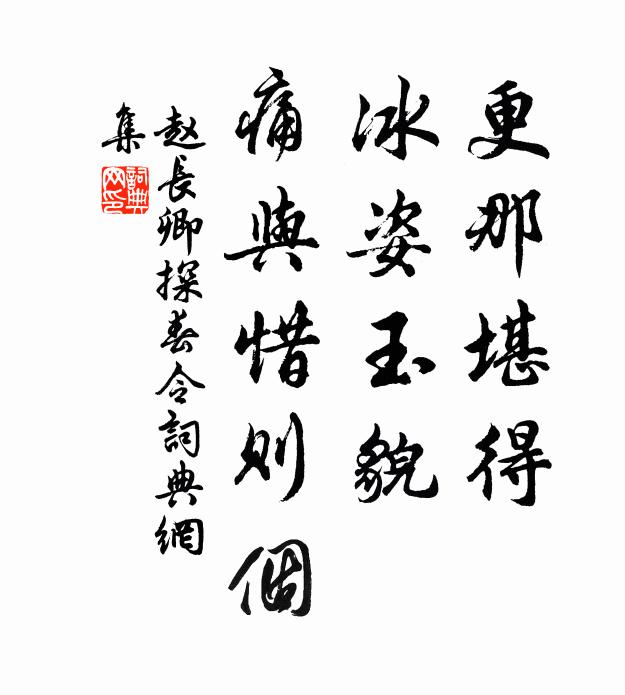 更那堪得
冰姿玉貌
痛與惜則個
赵長卿探春令詞典網
集
詞典网印